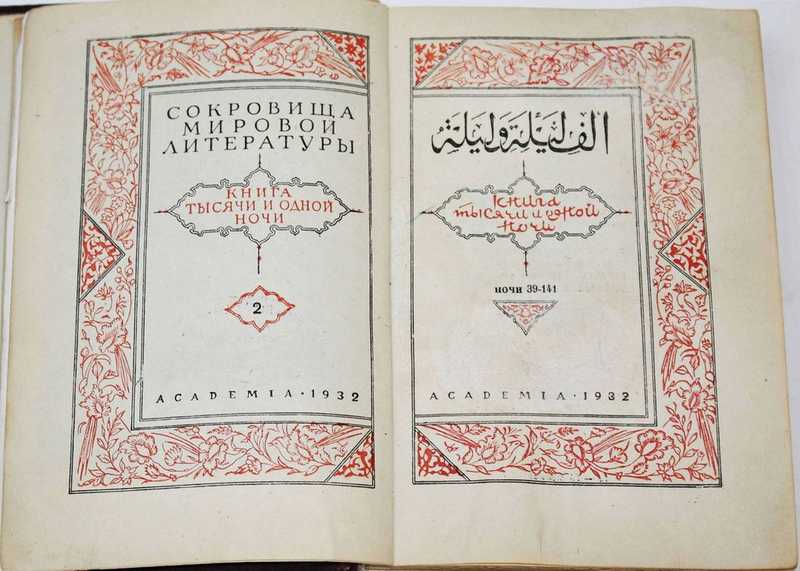 СОКРОВИЩА
МИРОВОЙ
ЛИТЕРАТУРЫ
КНИГА
ТЫСЯЧИ И ОДНОЙ
НОЧИ
2
ACADEMIA · 1932
الف ليلة وليلة
Книга
тысячи и одной
ночи
ночи 39-141
ACADEMIA · 1932